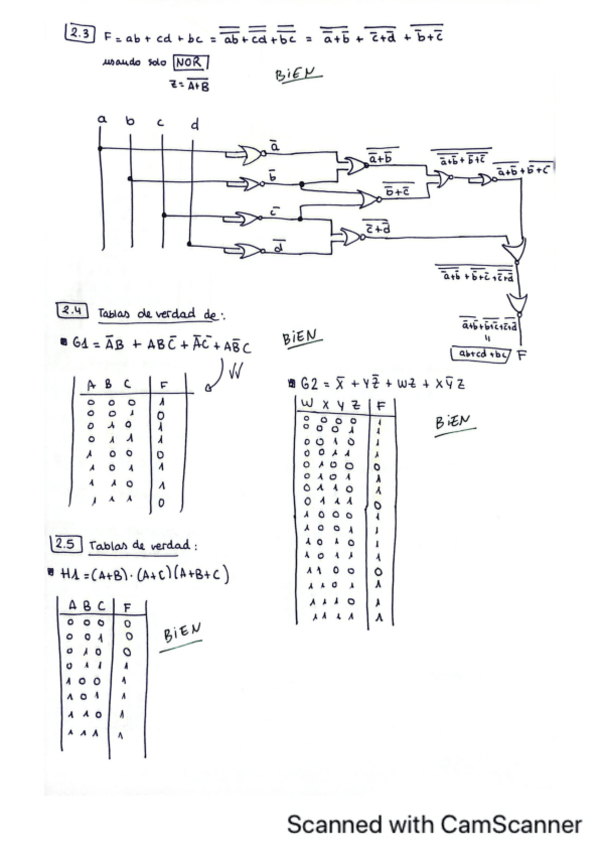 2.3 F = ab + cd + bc = \overline{\overline{ab}} + \overline{\overline{cd}} + \overline{\overline{bc}} = \overline{\overline{a}+\overline{b}} + \overline{\overline{c}+\overline{d}} + \overline{\overline{b}+\overline{c}}
usando solo NOR
BIEN
Z = \overline{A+B}
a b c d
\overline{a}
\overline{b}
\overline{c}
\overline{d}
\overline{\overline{a}+\overline{b}}
\overline{\overline{b}+\overline{c}}
\overline{\overline{c}+\overline{d}}
ab+cd+bc F
2.4 Tablas de verdad de:
G1 = \overline{A}B + AB\overline{C} + \overline{A}\overline{C} + A\overline{B}C
BIEN
A B C F
0 0 0 1
0 0 1 0
0 1 0 1
0 1 1 1
1 0 0 0
1 0 1 1
1 1 0 1
1 1 1 0
G2 = \overline{X} + Y\overline{Z} + WZ + X\overline{Y}Z
W X Y Z F
0 0 0 0 1
0 0 0 1 1
0 0 1 0 1
0 0 1 1 1
0 1 0 0 0
0 1 0 1 1
0 1 1 0 1
0 1 1 1 0
1 0 0 0 1
1 0 0 1 1
1 0 1 0 1
1 0 1 1 1
1 1 0 0 0
1 1 0 1 1
1 1 1 0 1
1 1 1 1 1
BIEN
2.5 Tablas de verdad:
H1 = (A+B)·(A+C)(A+B+C)
A B C F
0 0 0 0
0 0 1 0
0 1 0 0
0 1 1 1
1 0 0 1
1 0 1 1
1 1 0 1
1 1 1 1
BIEN
Scanned with CamScanner